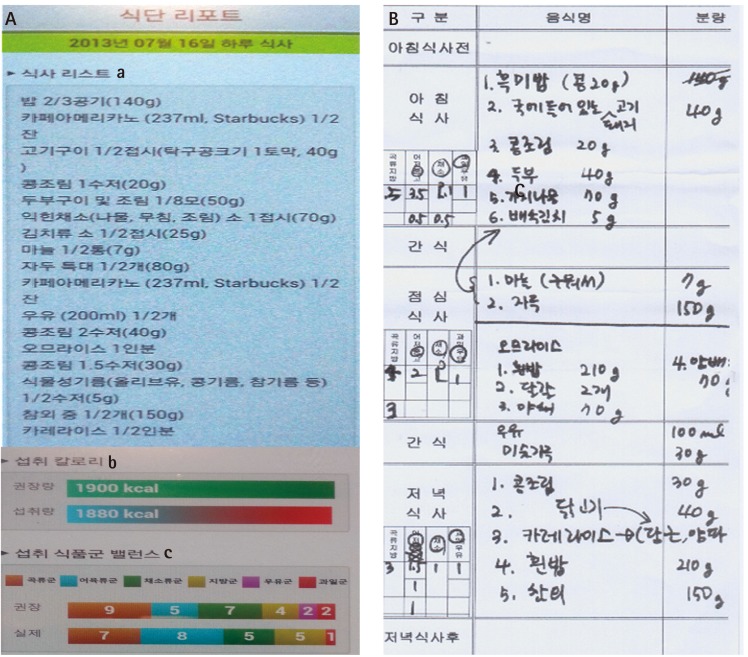 A
식단 리포트
2013년 07월 16일 하루 식사
▸ 식사 리스트 a
밥 2/3공기(140g)
카페아메리카노 (237ml, Starbucks) 1/2
잔
고기구이 1/2접시(탁구공크기 1토막, 40g
)
콩조림 1수저(20g)
두부구이 및 조림 1/8모(50g)
익힌채소(나물, 무침, 조림) 소 1접시(70g)
김치류 소 1/2접시(25g)
마늘 1/2통(7g)
자두 특대 1/2개(80g)
카페아메리카노 (237ml, Starbucks) 1/2
잔
우유 (200ml) 1/2개
콩조림 2수저(40g)
오므라이스 1인분
콩조림 1.5수저(30g)
식물성기름(올리브유, 콩기름, 참기름 등)
1/2수저(5g)
참외 중 1/2개(150g)
카레라이스 1/2인분
▸ 섭취 칼로리 b
권장량 1900 kcal
섭취량 1880 kcal
▸ 섭취 식품군 밸런스 c
곡류군 어육류군 채소류군 지방군 우유군 과일군
권장 9 5 7 4 2 2
실제 7 8 5 5 1
B 구분 음식명 분량
아침식사전
아침
식사
1. 흑미밥 (콩 20g)
2. 국에 들어 있는 고기 40g
3. 콩조림 20g
4. 두부 40g
5. 가지나물 70g
C
6. 배추김치 5g
.5 3.5 1
0.5 0.5
간식
점심
식사
1. 마늘 7g
2. 자두 150g
오므라이스
1. 흰밥 210g
2. 달걀 2개
3. 야채 70g
4. 양배
70g
2 1 1
3
간식
우유 100ml
미숫가루 30g
저녁
식사
1. 콩조림 30g
2. 닭고기 40g
3. 카레라이스 → (당근, 양파
4. 흰밥 210g
5. 참외 150g
3 1 1
1
1
저녁식사후